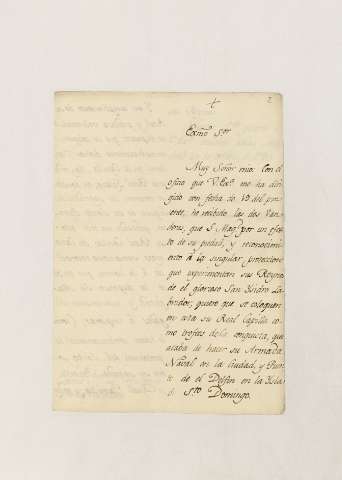 2
Exmo Sor
Muy Señor mio: Con el
oficio que V. Exa. me ha diri-
gido con fecha de 10 del pre-
sente, he recibido las dos Van-
deras, que S. Magd. por un efec-
to de su piedad, y reconocimi-
ento à la singular proteccion
que experimentan sus Reynos
de el glorioso San Isidro La-
brador, quiere que se coloquen
en esta su Real Capilla co-
mo trofeos de la conquista, que
acaba de hacer su Armada
Naval en la Ciudad, y Puer-
to de el Delfin en la Isla
de Sto. Domingo.